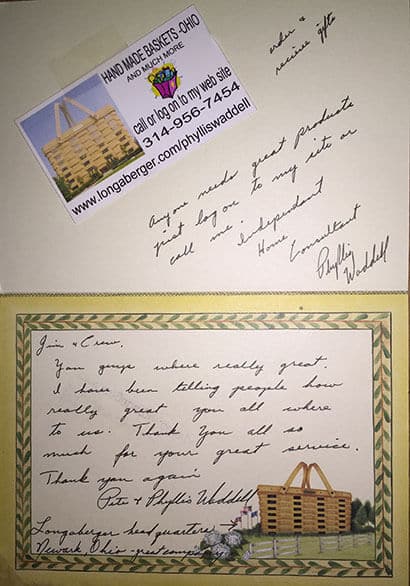 HAND MADE BASKETS-OHIO
AND MUCH MORE
call or log on to my web site
314-956-7454
www.longaberger.com/phylliswaddell
order &
recieve gifts
Anyone needs great products
just log on to my site or
call me.
Independant
Home
Consultant
Phyllis
Waddell
Jim & Crew,
You guys where really great.
I have been telling people how
really great you all where
to us. Thank You all so
much for your great service.
Thank you again
Pete & Phyllis Waddell
Longaberger headquarters →
Newark Ohio - great company